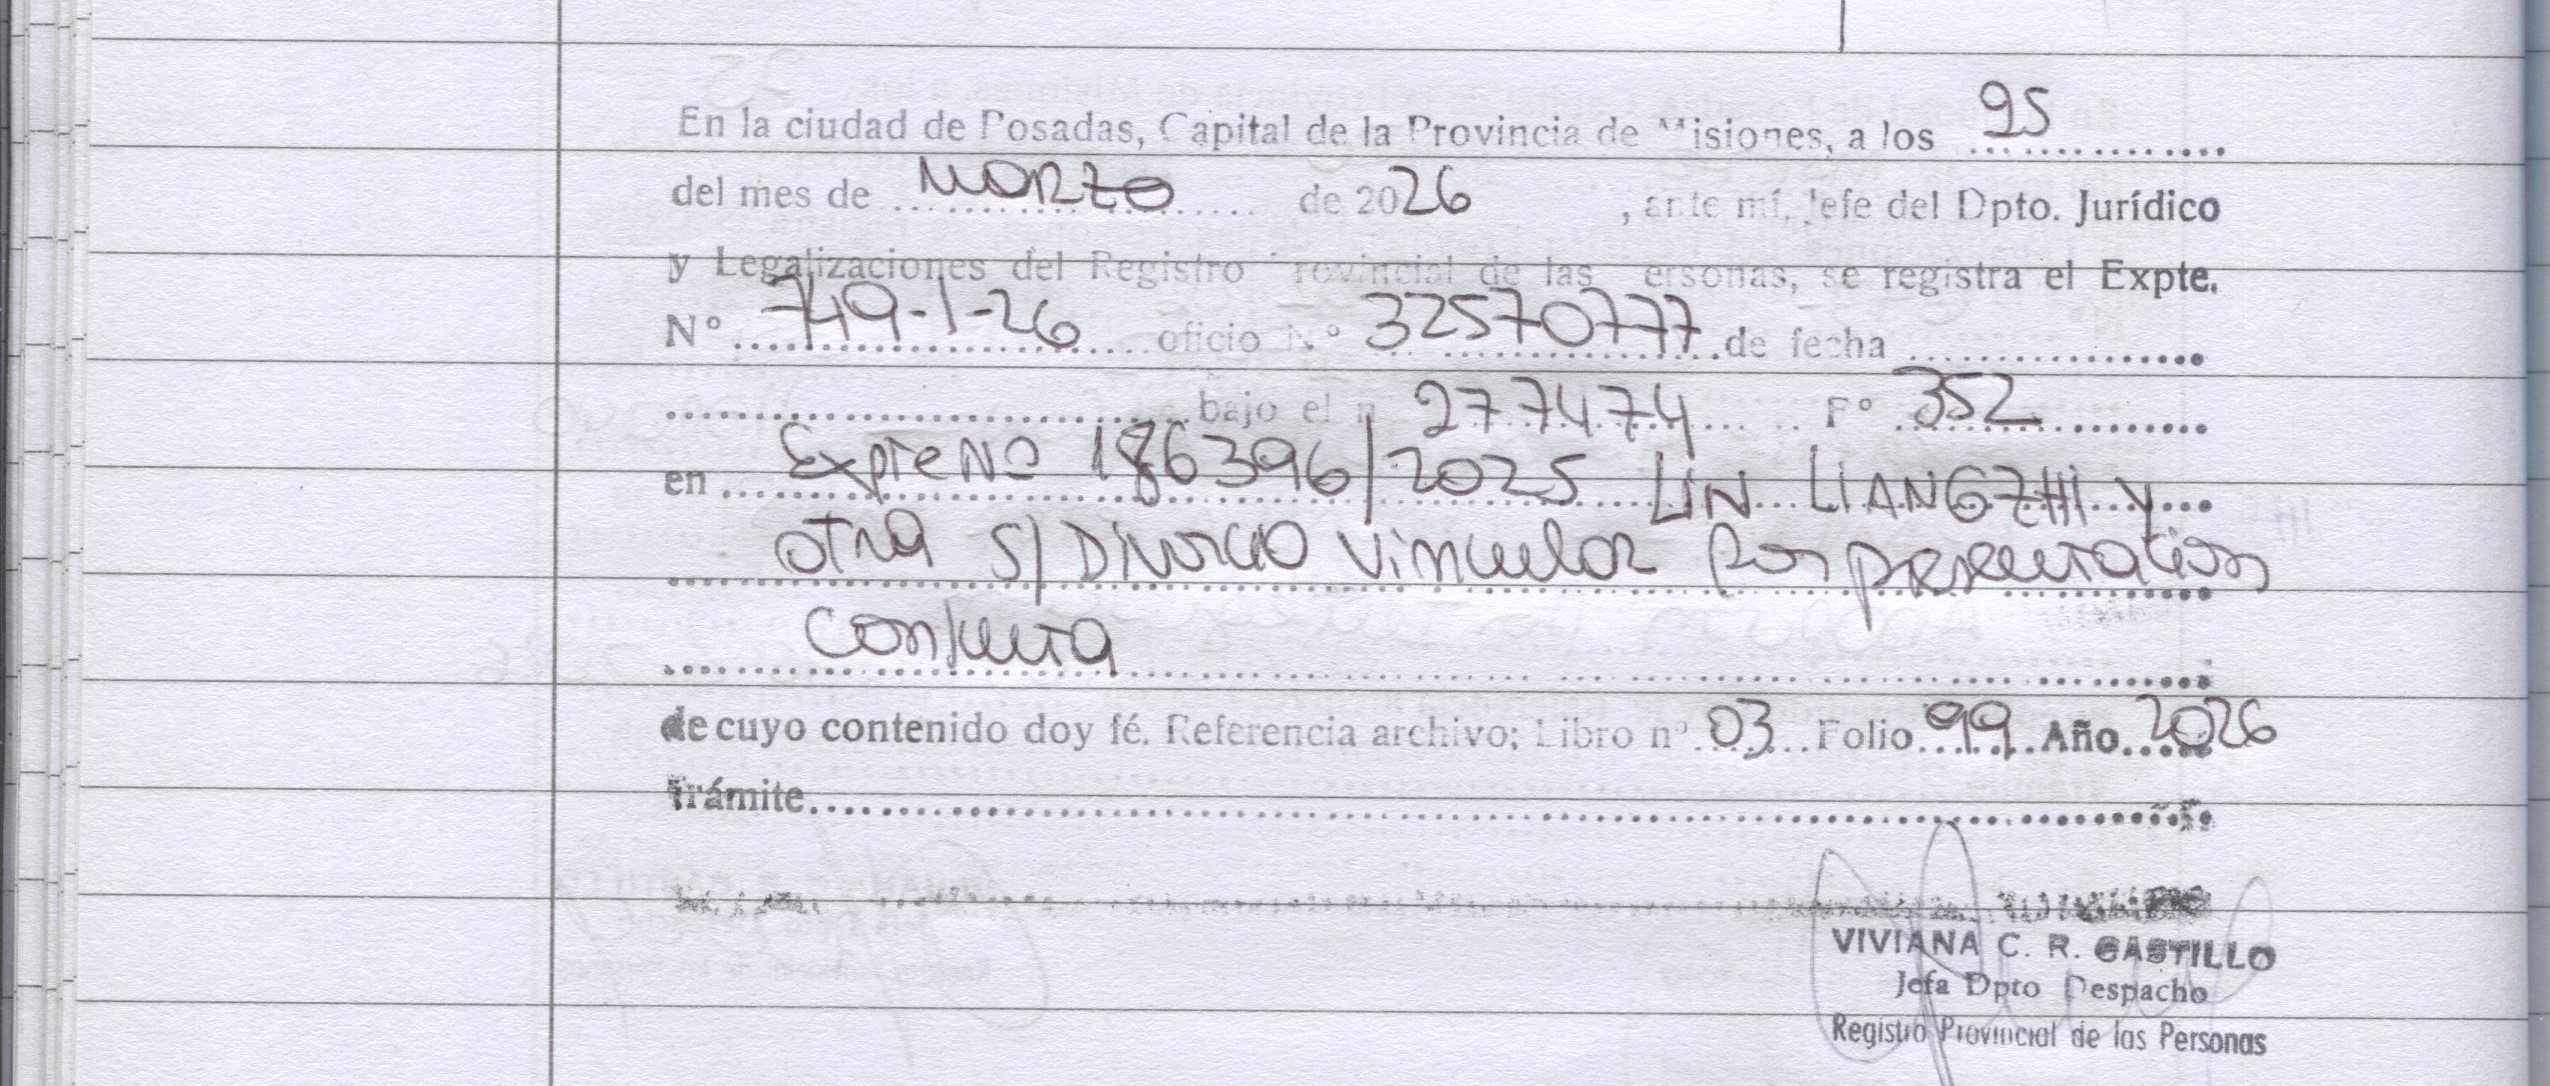 En la ciudad de Posadas, Capital de la Provincia de Misiones, a los 25
del mes de MARZO de 2026, ante mí, Jefe del Dpto. Jurídico
y Legalizaciones del Registro Provincial de las Personas, se registra el Expte.
Nº 749-1-26 oficio Nº 32570777 de fecha
bajo el n 277474 Fº 352
en Expte Nº 186396/2025 LIN LIANGZHI y
otra S/ Divorcio Vincular Por presentacion
Conjunta
de cuyo contenido doy fé. Referencia archivo; Libro nº 03 Folio 99 Año 2026
Trámite
VIVIANA C. R. CASTILLO
Jefa Dpto Despacho
Registro Provincial de las Personas